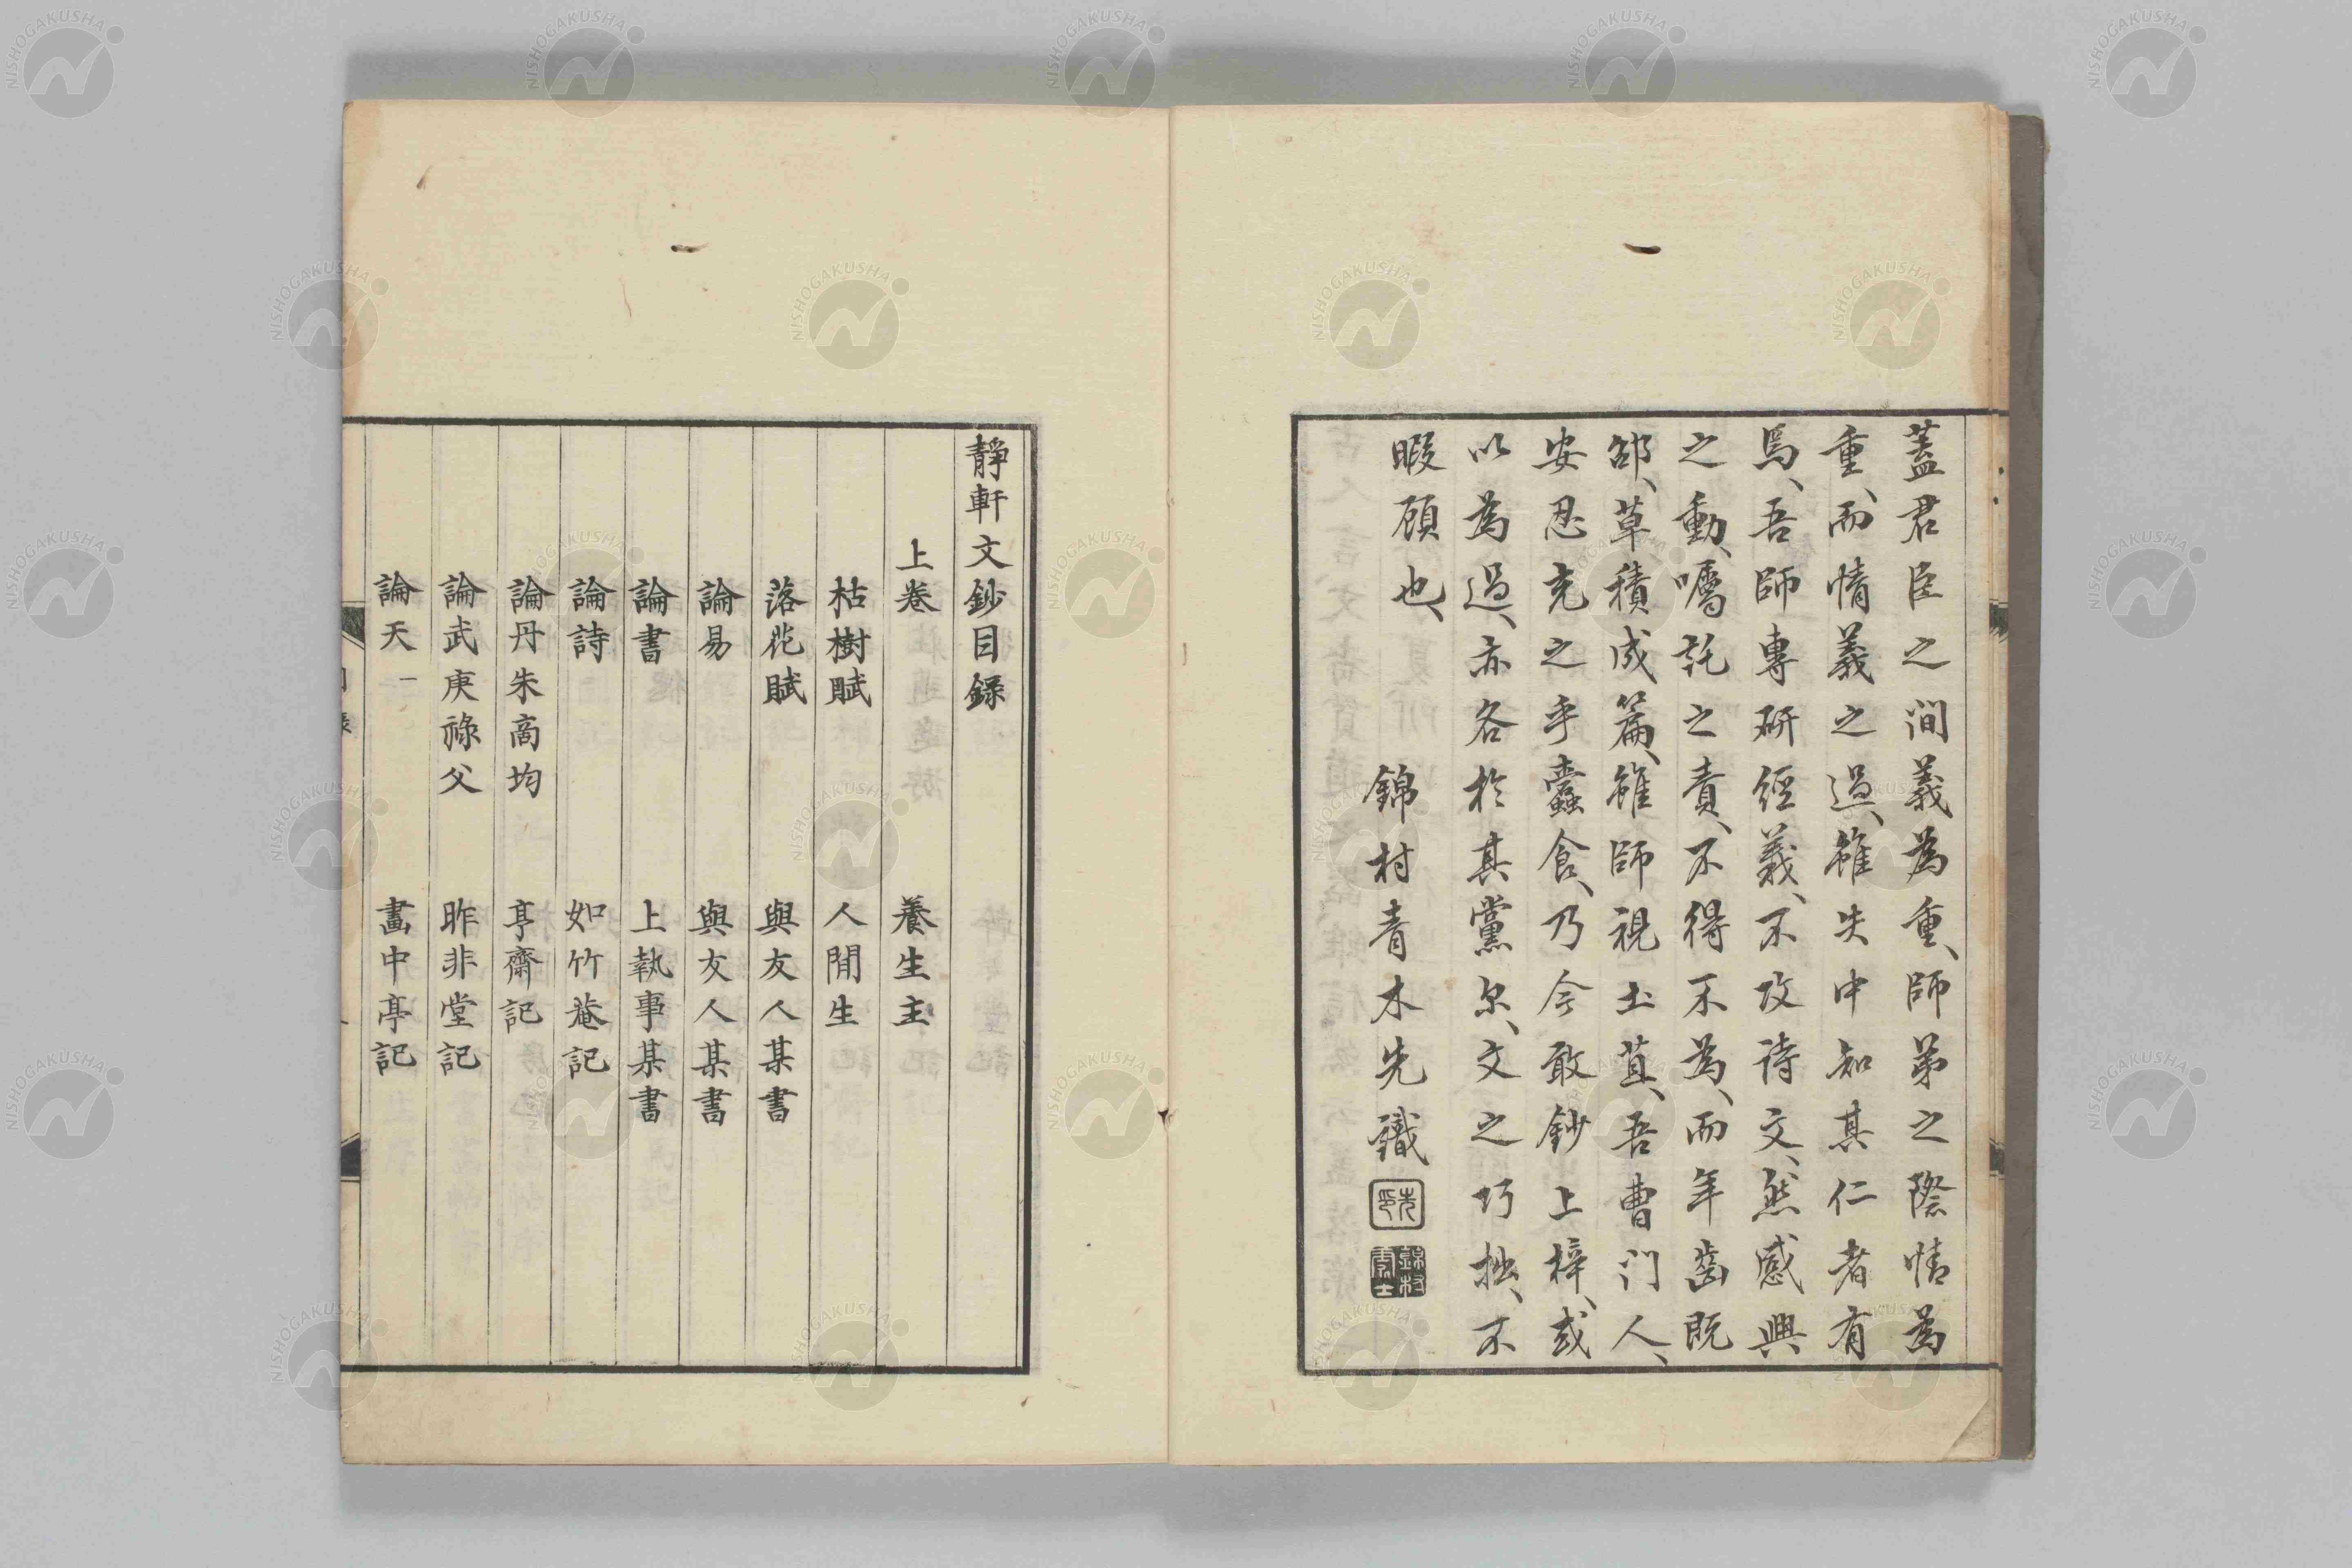 蓋君臣之間義為重、師弟之際情為
重、而情義之過、雖失中知其仁者有
焉、吾師專研經義、不攻詩文、然感興
之動、囑託之責、不得不為、而年齒既
邵、草積成篇、雖師視土苴、吾曹门人、
安忍充之乎蠹食、乃今敢鈔上梓、或
以為過、亦各於其黨尔、文之巧拙、不
暇顧也、
錦村青木先鐵
先印
錦村
靜軒文鈔目錄
上卷
養生主
枯樹賦
人間生
落花賦
與友人某書
論易
與友人某書
論書
上執事某書
論詩
如竹菴記
論丹朱商均
亨齋記
論武庚祿父
昨非堂記
論天一
畵中亭記
NISHOGAKUSHA